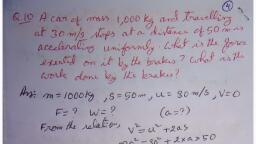 4
Q.10 A car of mass 1,000 kg and travelling
at 30 m/s stops at a distance of 50 m is
accelerating uniformly. What is the force
exerted on it by the brakes? What is the
work done by the brakes?
Ans: m = 1000 kg, S = 50 m, u = 30 m/s, V = 0
F = ? W = ? (a = ?)
From the relation, V² = u² + 2as
0² = 30² + 2 x a x 50